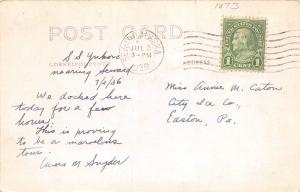 1873
POST CARD
CORRESPONDENCE
ADDRESS
JUL 3
3-PM
1 CENT 1
S S Yukon
nearing Seward
7/2/36
We docked here
today for a few
hours.
This is proving
to be a marvelous
tour.
M. Snyder
Miss Annie M. Caton
City Ice Co,
Easton, Pa.